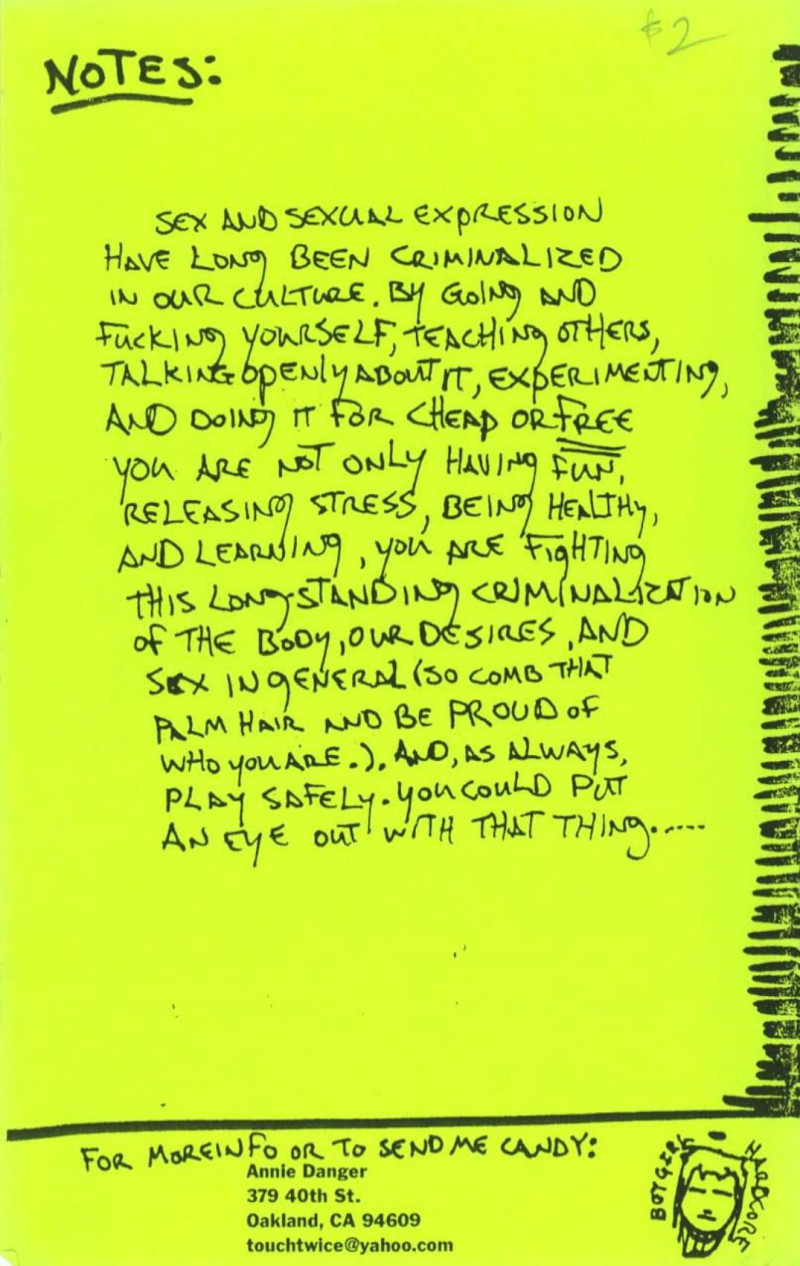 $2
NOTES:
SEX AND SEXUAL EXPRESSION
HAVE LONG BEEN CRIMINALIZED
IN OUR CULTURE. BY GOING AND
FUCKING YOURSELF, TEACHING OTHERS,
TALKING OPENLY ABOUT IT, EXPERIMENTING,
AND DOING IT FOR CHEAP OR FREE
YOU ARE NOT ONLY HAVING FUN,
RELEASING STRESS, BEING HEALTHY,
AND LEARNING, YOU ARE FIGHTING
THIS LONG-STANDING CRIMINALIZATION
OF THE BODY, OUR DESIRES, AND
SEX IN GENERAL (SO COMB THAT
PALM HAIR AND BE PROUD OF
WHO YOU ARE.). AND, AS ALWAYS,
PLAY SAFELY. YOU COULD PUT
AN EYE OUT WITH THAT THING.....
FOR MORE INFO OR TO SEND ME CANDY:
Annie Danger
379 40th St.
Oakland, CA 94609
touchtwice@yahoo.com
BOYGIRL
HARDCORE